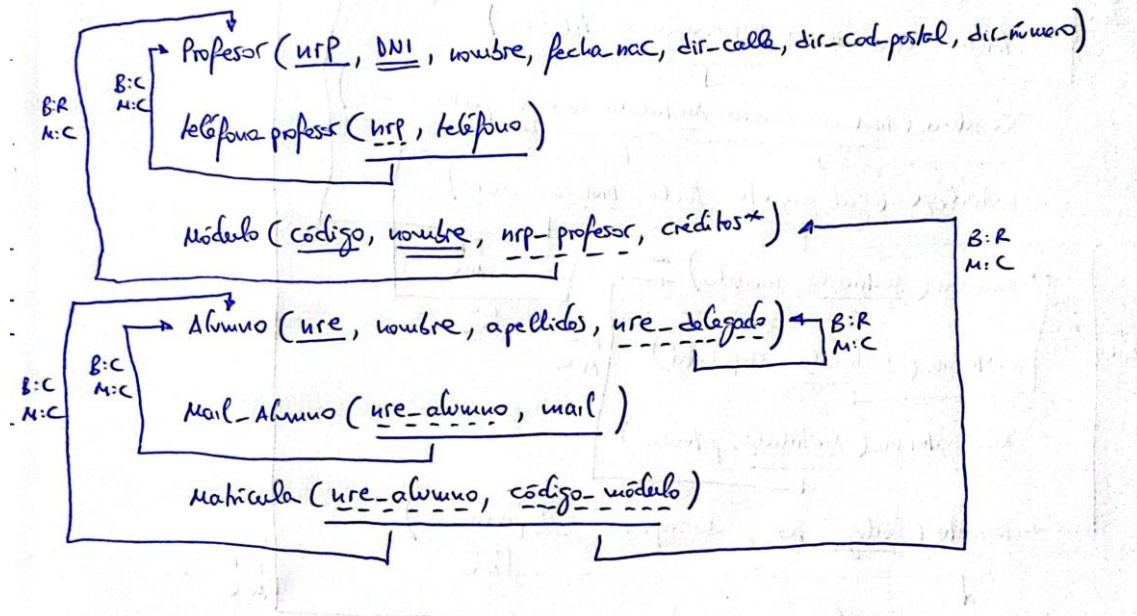 Profesor (nrp, DNI, nombre, fecha_nac, dir_calle, dir_cod_postal, dir_número)
B:C
M:C
B:R
M:C
teléfono profesor (nrp, teléfono)
Módulo (código, nombre, nrp_profesor, créditos*)
B:R
M:C
Alumno (nre, nombre, apellidos, nre_delegado)
B:R
M:C
B:C
M:C
B:C
M:C
Mail_Alumno (nre_alumno, mail)
Matricula (nre_alumno, código_módulo)